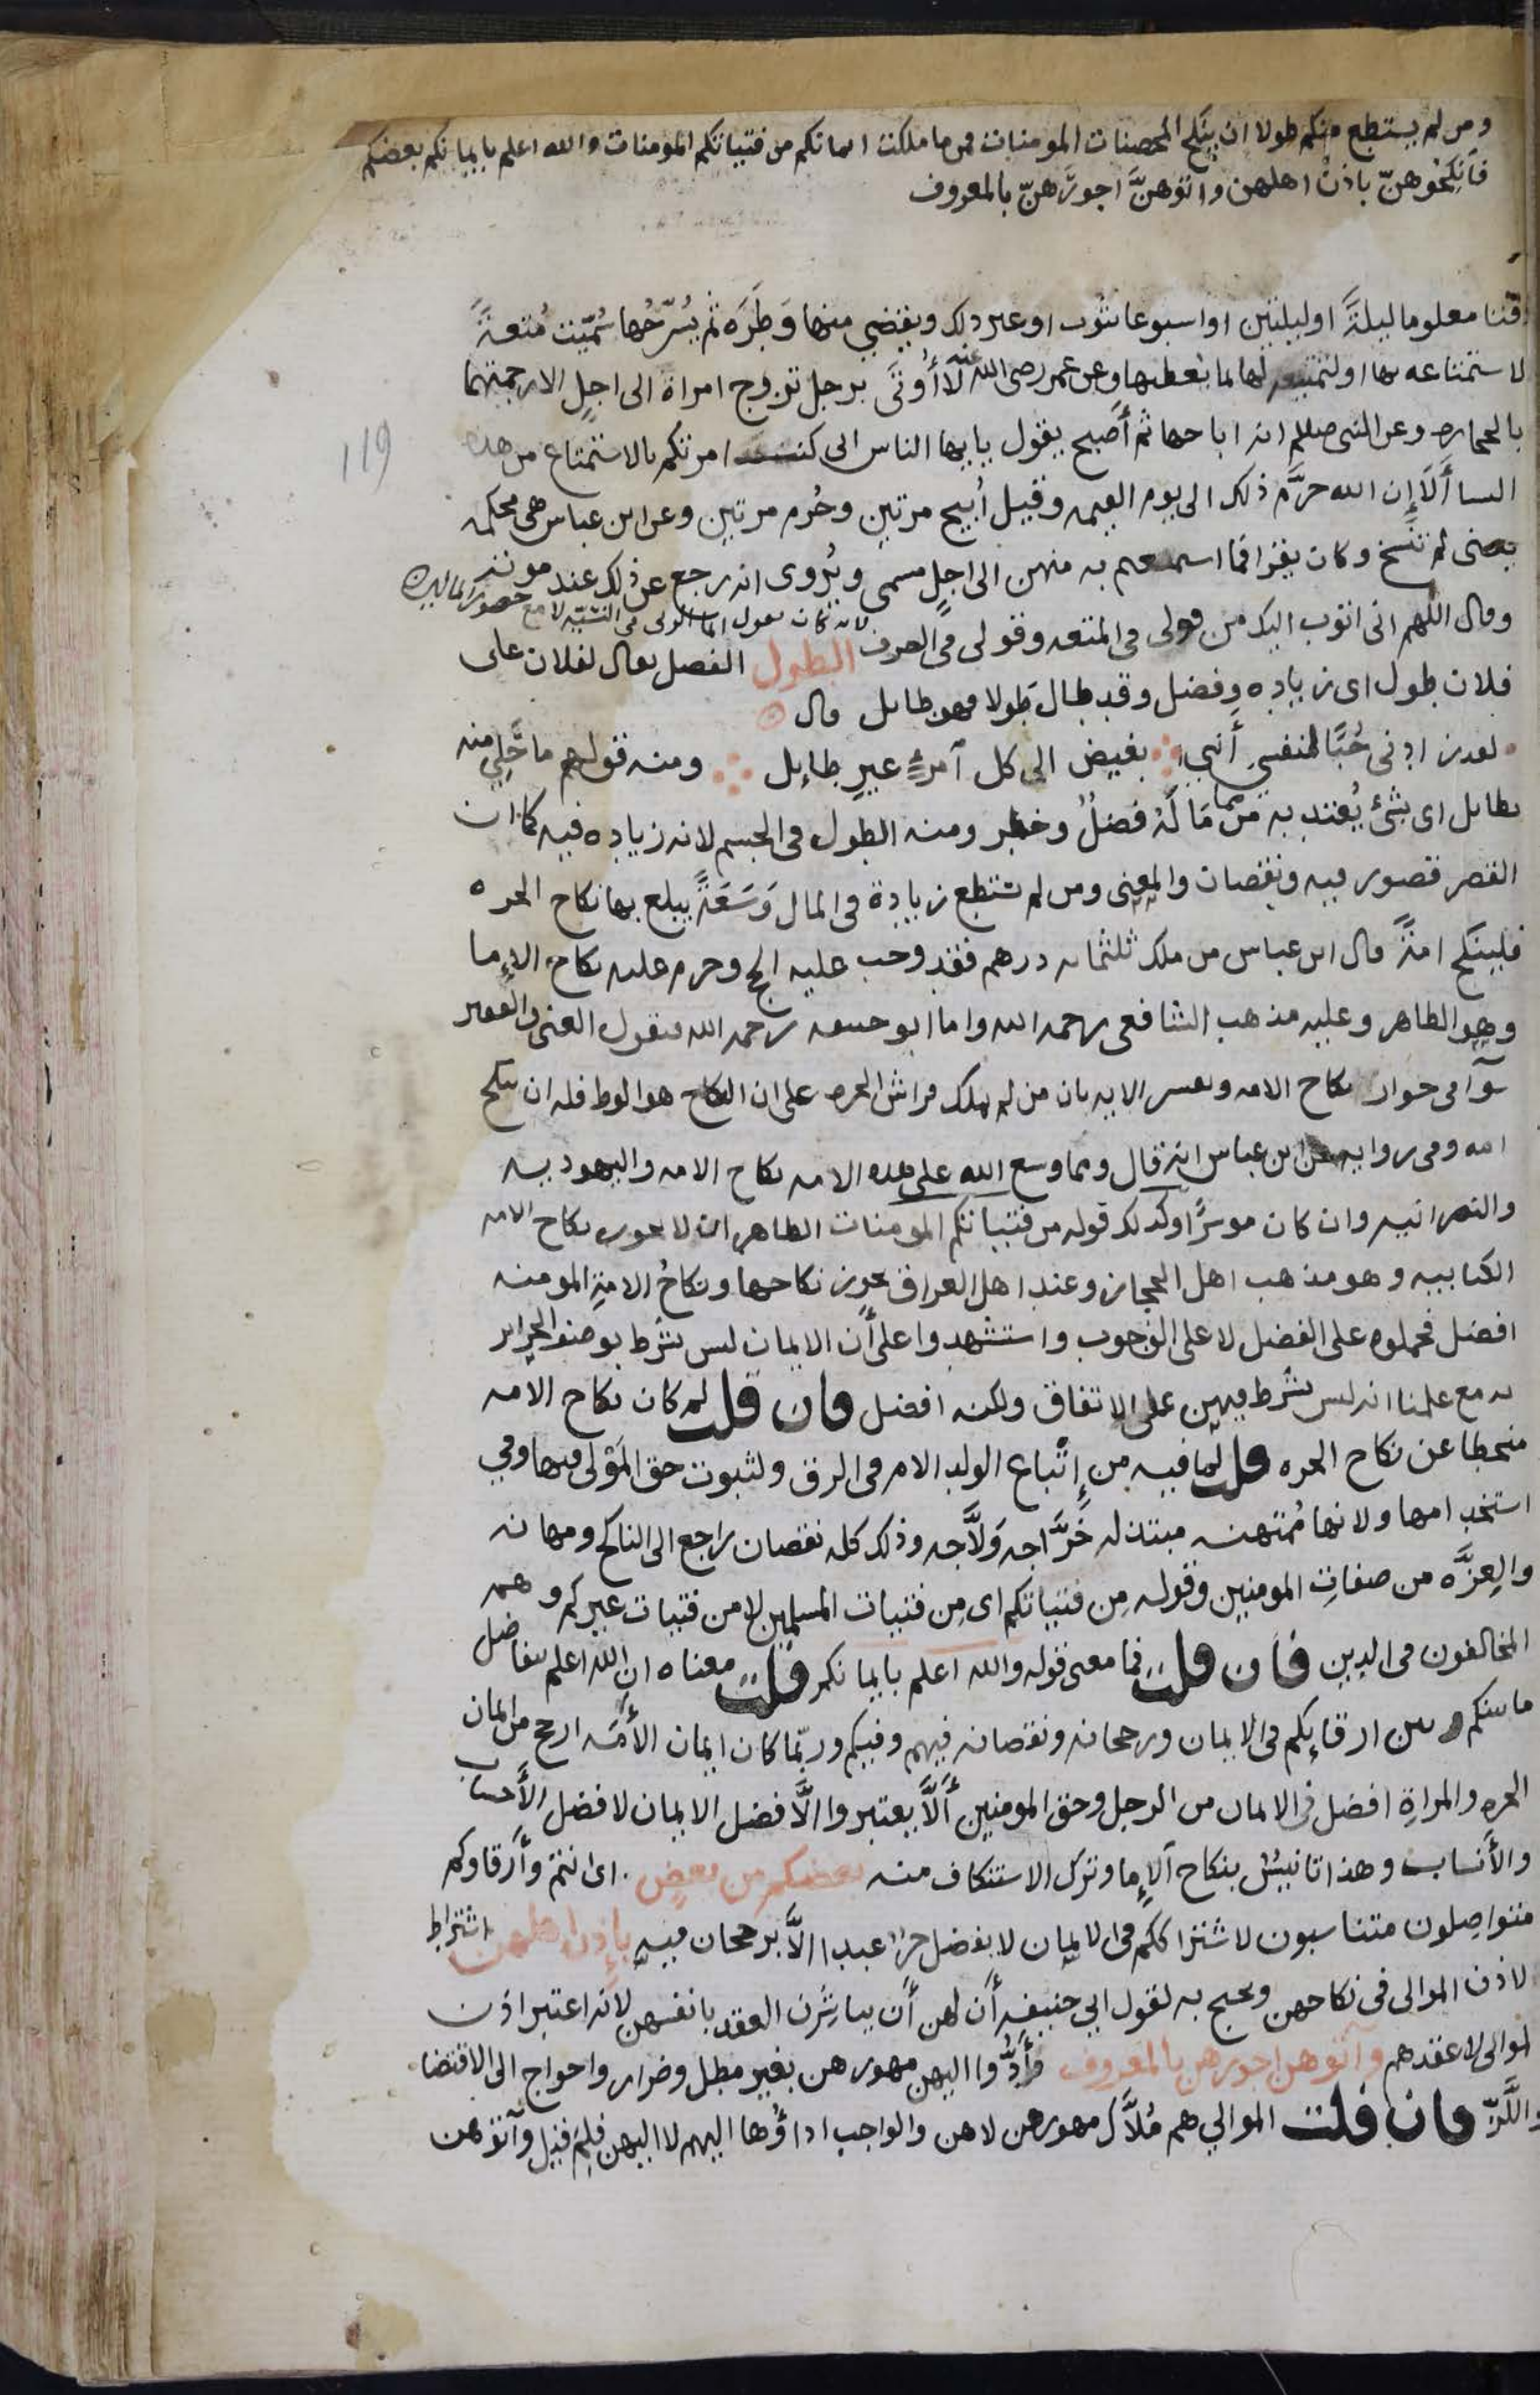 ومن لم يستطع منكم طولا ان ينكح المحصنات المومنات فمن ما ملكت ايمانكم من فتياتكم المومنات والله اعلم بايمانكم بعضكم
فَانكِحُوهنّ باذن اهلهن وآتوهنَّ اجورَهنّ بالمعروف
وقتا معلوما ليلةً اوليلتين او اسبوعا بثوب او غير ذلك ويقضي منها وَطَرَه ثم يُسَرّحُها سُمّيت مُتعةً
لاستمتاعه بها او لتمتيعه لها بما يعطيها وعن عمر رضى الله عنه لَا أُوتَى برجل تزوج امراة الى اجلٍ الا رجمتهما
بالحجاره وعن النبى صلعم انه اباحها ثم أَصبح يقول يايها الناس انى كنت امرتكم بالاستمتاع من هذه
119
النسا أَلَا إِن الله حرَّم ذلك الى يوم القيمه وقيل أُبيح مرتين وحُرم مرتين وعن ابن عباس هى محكمه
يعنى لم تنسخ وكان يقرا فما استمتعتم به منهن الى اجلٍ مسمى ويُروى انه رجع عن ذلك عند موته
وقال اللهم انى اتوب اليك من قولى فى المتعه وقولى فى الصرف الطول الفضل يقال لفلان على
لانه كان يقول انما الربى فى النسّيه لا مع حضور المالين
فلان طول اى زياده وفضل وقد طال طَولا فهو طايل قال
لقد زادنى حُبًّا لنفسي أنني بغيض الى كل آمرئ غيرِ طايل ومنه قولهم ما حَلِيَ منه
بطايل اى بشئ يُعتد به مما مَالَهُ فضلٌ وخطر ومنه الطول فى الجسم لانه زياده فيه كما ان
القصر قصور فيه ونقصان والمعنى ومن لم يستطع زيادة فى المال وَسَعَةً يبلغ بها نكاح الحره
فلينكح امةً قال ابن عباس من ملك ثلثمايه درهم فقد وجب عليه الحج وحرم عليه نكاح الإِما
وهو الظاهر وعليه مذهب الشافعى رحمه الله واما ابو حنيفه رحمه الله فيقول الغنى والفقير
سَوآ فى جواز نكاح الامه ويفسر الايه بان من لم يملك فراش الحره على ان النكاح هو الوط فله ان ينكح
امه وفى روايه عن ابن عباس انه قال ومما وسع الله على هذه الامه نكاح الامه واليهوديه
والنصرانيه وان كان موسرًا وكذلك قوله من فتياتكم المومنات الظاهر ان لا يجوز نكاح الامه
الكتابيه وهو مذهب اهل الحجاز وعند اهل العراق يجوز نكاحها ونكاحُ الامةِ المومنه
افضل فحملوه على الفضل لا على الوجوب واستشهدوا على أَن الايمان ليس بشرط بوصف الحراير
به مع علمنا انه ليس بشرط فيهن على الاتفاق ولكنه افضل فان قلت لم كان نكاح الامه
منحطا عن نكاح الحره قلت لما فيه من إتّباع الولد الام فى الرق ولثبوت حق المَوْلى فيها وفي
استخدامها ولانها مُمتهنه مبتذله خَرَّاجه وَلاَّجه وذلك كله نقصان راجع الى الناكح ومهانه
والعِزَّه من صفاتِ المومنين وقوله مِن فتياتكم اى مِن فتيات المسلمين لا من فتيات غيركم وهم
المخالفون فى الدين فان قلت فما معنى قوله والله اعلم بايمانكم قلت معناه ان الله اعلم بتفاضل
ما بينكم وبين ارقائِكم فى الايمان ورجحانه ونقصانه فيهم وفيكم وربّما كان ايمان الأَمَه ارجح من ايمان
الحره والمراةِ افضل فى الايمان من الرجل وحق المومنين أَلَّا يعتبروا الَّا فضل الايمان لا فضل الأَحساب
والأَنساب وهذا تانيسٌ بنكاح آلإِما وترك الاستنكاف منه بعضكم من بعضٍ اى انتم وأَرقاوكم
متواصِلون متناسبون لاشتراككم فى الايمان لا يفضل حرٌ عبدا الَّا برجحان فيه بإِذن اهلهن اشتراط
لاذن الموالى فى نكاحهن ويحتج به لقول ابي حنيفه أَن لهن أَن يباشِرن العقد بانفسهن لانه اعتبر اذن
الموالى لا عقدهم وآتوهن اجورهن بالمعروف وأَدُّوا اليهن مهورهن بغير مطل وضرار واحواج الى الاقتضا
واللَّزّ فان قلت الموالي هم مُلاَّك مهورهن لا هن والواجب اداؤُها اليهم لا اليهن فَلِمَ قيل وآتوهن